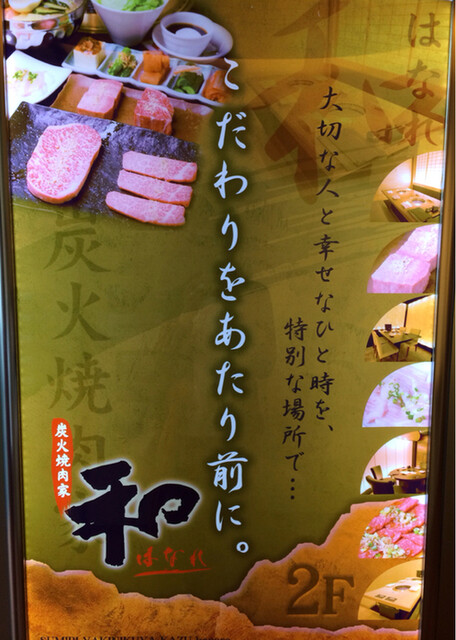 はなれ
大切な人と幸せなひと時を、
特別な場所で…
こだわりをあたり前に。
炭火焼肉家
炭火焼肉家
和
はなれ
2F